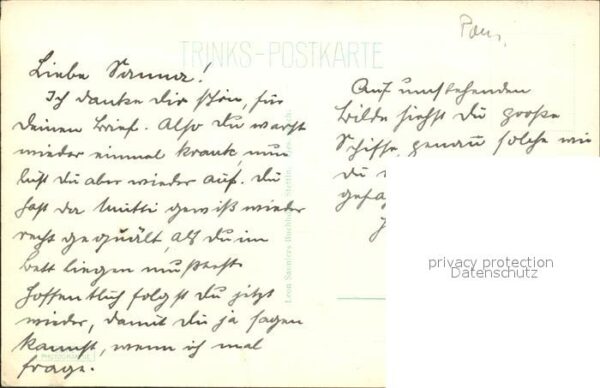 TRINKS-POSTKARTE
Liebe Sanna!
Ich danke dir schön, für
deinen Brief. Also du warst
wieder einmal krank, nun
bist du aber wieder auf. Du
hast da Mutti gewiß wieder
recht gequält, als du im
Bett liegen mußtest
Hoffentlich folgst du jetzt
wieder, damit du ja sagen
kannst, wenn ich mal
frage.
Auf umstehenden
Bilde siehst Du große
Schiffe, genau solche wie
du
Leon Saunier's Buchh. Stettin
privacy protection
Datenschutz